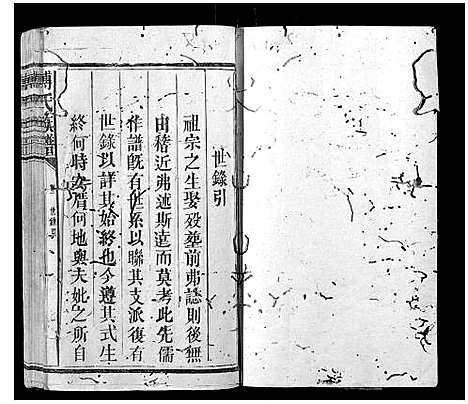 世錄引
祖宗之生娶殁葬前弗誌則後無
由稽近弗述斯遠而莫考此先儒
作譜既有世系以聯其支派復有
世錄以詳其始終也今遵其式生
終何時安厝何地與夫妣之所自
氏族譜
世錄引